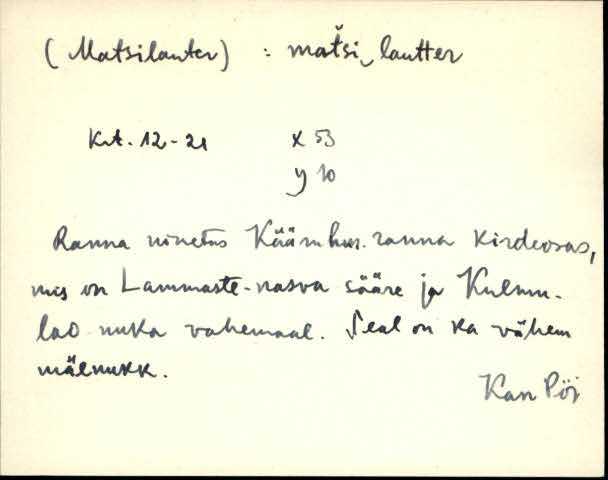 (Matsilauter) : matši‿lautter
Krt. 12-21 x 53
y 10
Ranna nimetus Käämhus. ranna kirdeosas,
mis on Lammaste-nasva sääre ja Kulmu-
lao nuka vahemaal. Seal on ka vähem
mälnukk.
Kan Pöi